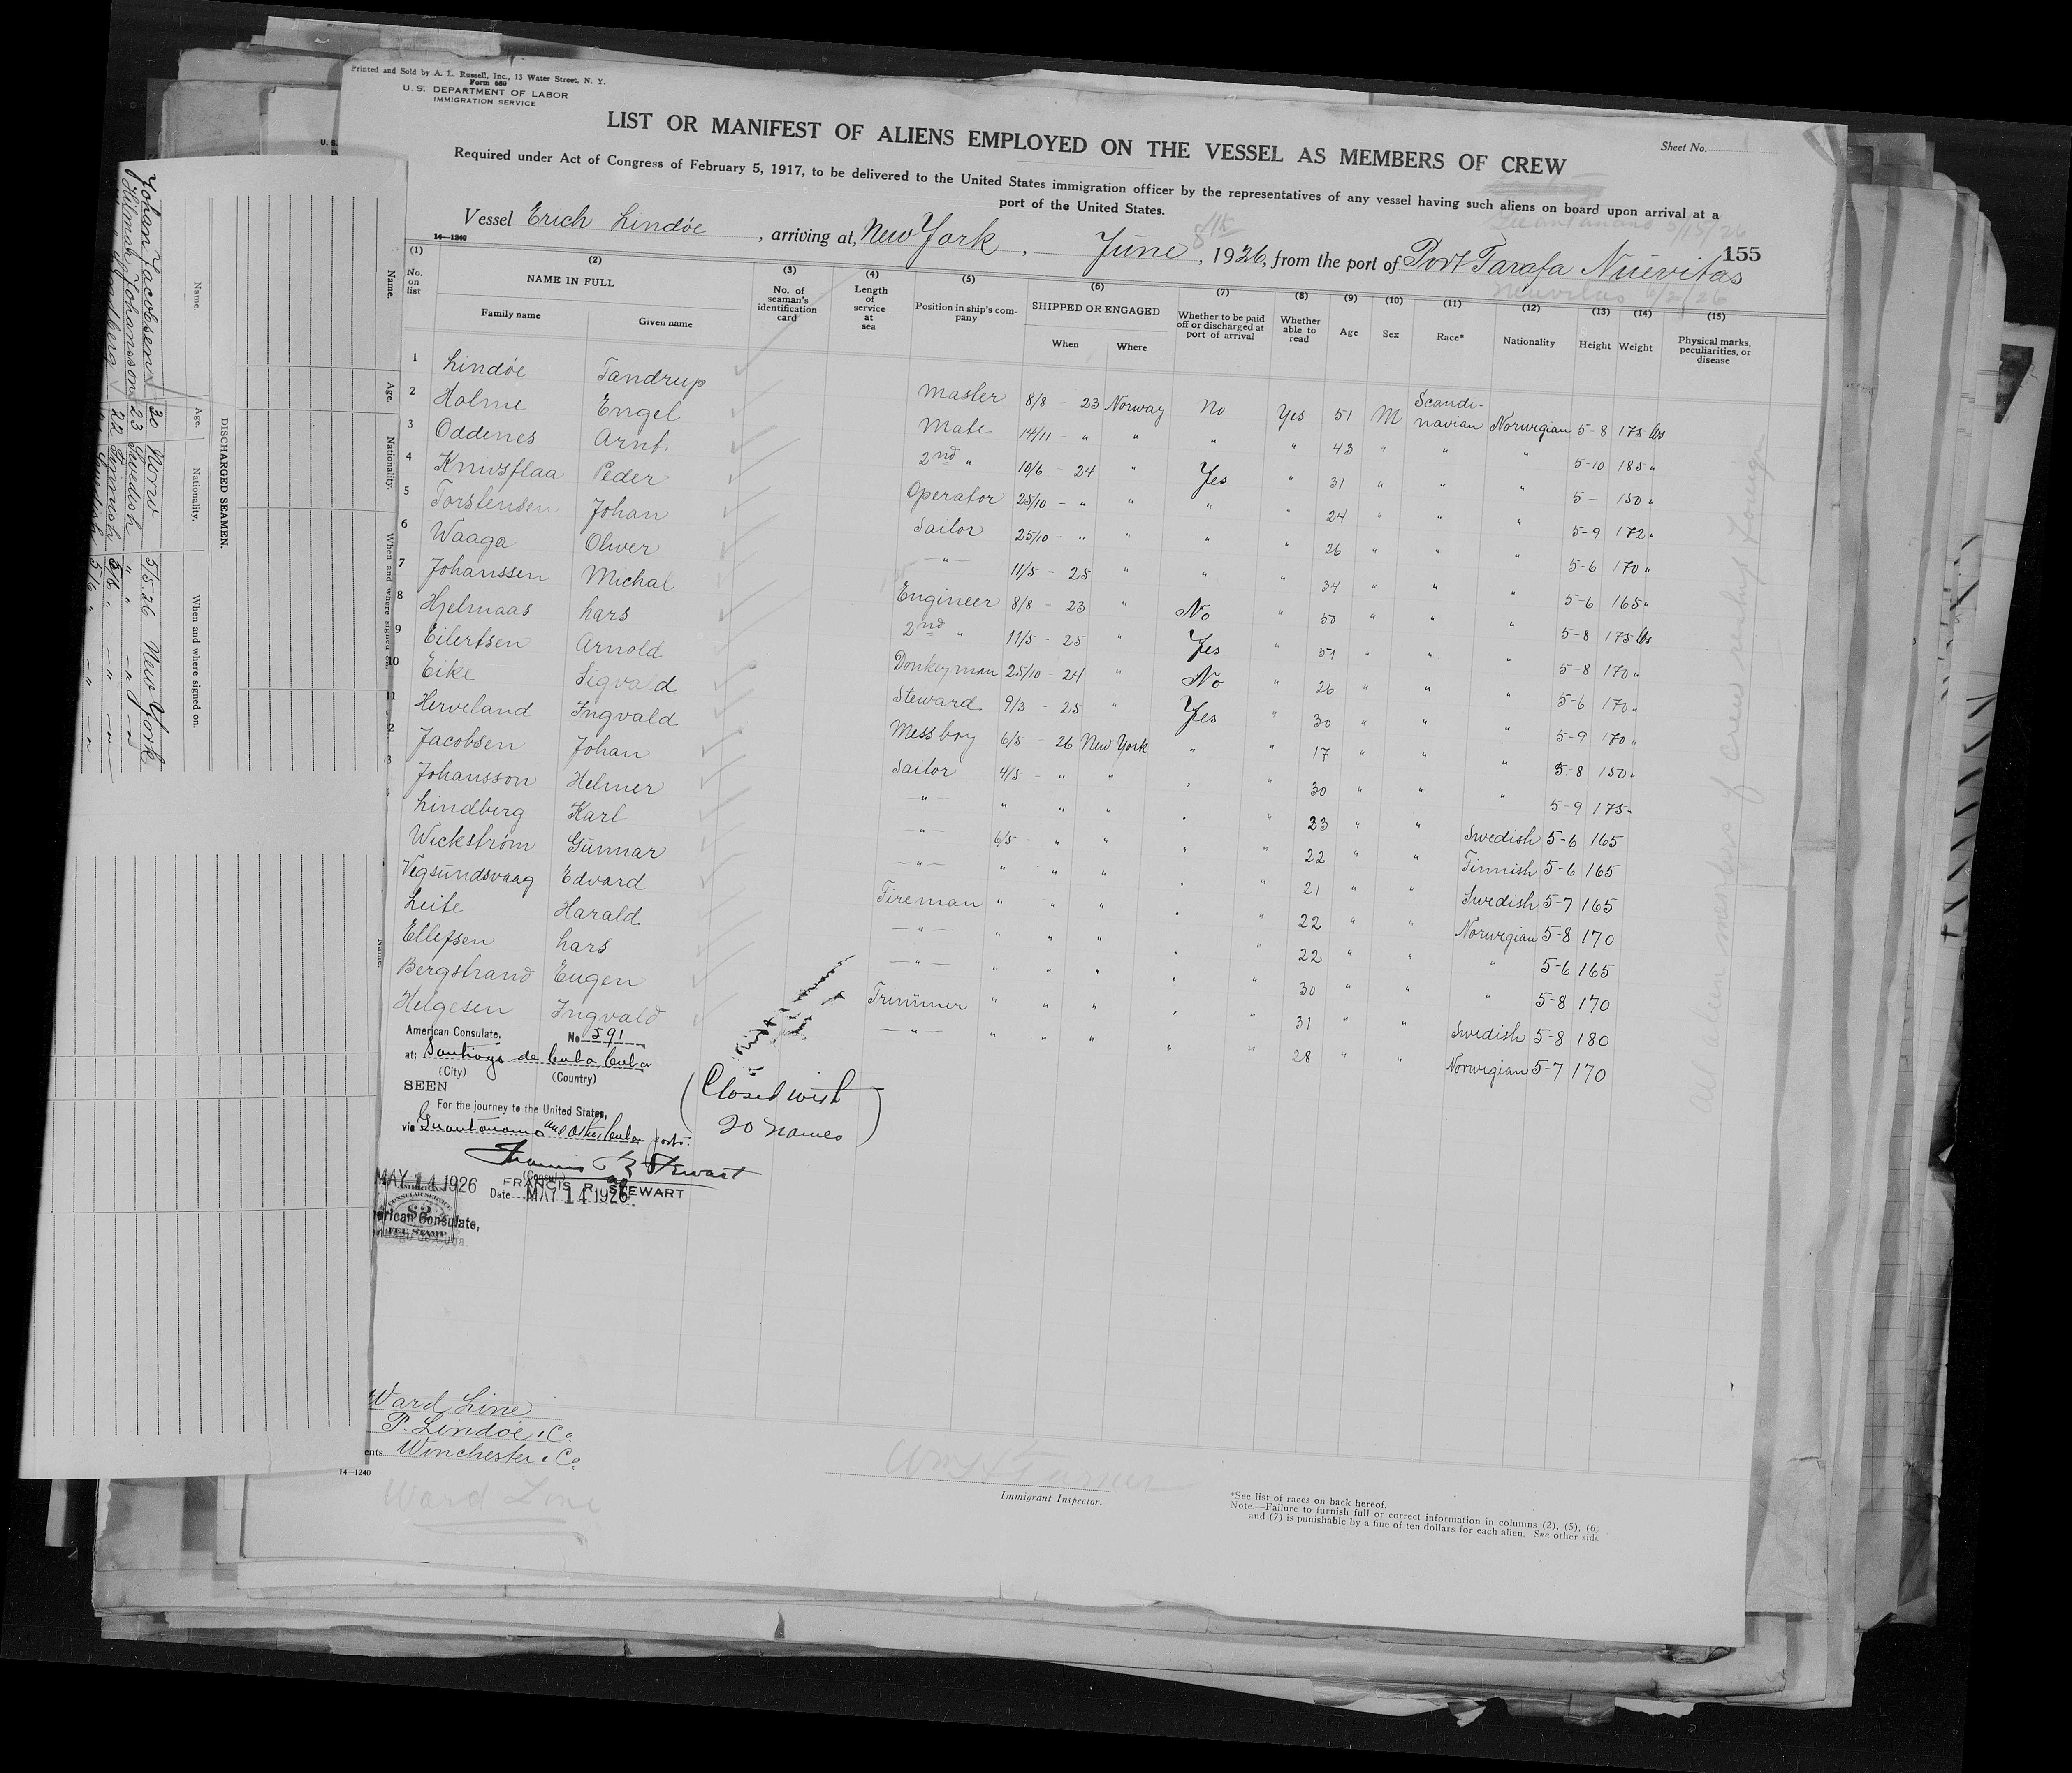 Printed and Sold by A. L. Russell, Inc., 13 Water Street, N. Y.
Form 680
U. S. DEPARTMENT OF LABOR
IMMIGRATION SERVICE
LIST OR MANIFEST OF ALIENS EMPLOYED ON THE VESSEL AS MEMBERS OF CREW
Sheet No.
Required under Act of Congress of February 5, 1917, to be delivered to the United States immigration officer by the representatives of any vessel having such aliens on board upon arrival at a
port of the United States.
Guantanamo 5/15/26
Vessel Erich Lindöe, arriving at New York, June 8th, 1926, from the port of Port Tarafa Nuevitas
155
14—1240
Neuvitas 6/2/26
(1) (2) (3) (4) (5) (6) (7) (8) (9) (10) (11) (12) (13) (14) (15)
No. on list NAME IN FULL No. of seaman's identification card Length of service at sea Position in ship's company SHIPPED OR ENGAGED Whether to be paid off or discharged at port of arrival Whether able to read Age Sex Race* Nationality Height Weight Physical marks, peculiarities, or disease
Family name Given name When Where
1 Lindöe Tandrup Master 8/8 - 23 Norway No Yes 51 M Scandinavian Norwegian 5-8 175 lbs
2 Holme Engel Mate 14/11 - " " " " 43 " " " 5-10 185 "
3 Oddenes Arnt 2nd " 10/6 - 24 " Yes " 31 " " " 5- 150 "
4 Knivsflaa Peder Operator 25/10 - " " " " 24 " " " 5-9 172 "
5 Torstensen Johan Sailor 25/10 - " " " " 26 " " " 5-6 170 "
6 Waaga Oliver —"— 11/5 - 25 " " " 34 " " " 5-6 165 "
7 Johanssen Michal Engineer 8/8 - 23 " No " 50 " " " 5-8 175 lbs
8 Hjelmaas Lars 2nd " 11/5 - 25 " Yes " 51 " " " 5-8 170 "
9 Eilertsen Arnold Donkeyman 25/10 - 24 " No " 26 " " " 5-6 170 "
10 Eike Sigvald Steward 9/3 - 25 " Yes " 30 " " " 5-9 170 "
11 Herveland Ingvald Mess boy 6/5 - 26 New York " " 17 " " " 5-8 150 "
2 Jacobsen Johan Sailor 4/5 - " " " " 30 " " " 5-9 175 "
3 Johansson Helmer —"— " " " " " 23 " " Swedish 5-6 165
Lindberg Karl —"— 6/5 - " " " " 22 " " Finnish 5-6 165
Wickström Gunnar —"— " " " " " 21 " " Swedish 5-7 165
Vegsundsvaag Edvard Fireman " " " " " 22 " " Norwegian 5-8 170
Leite Harald —"— " " " " " 22 " " " 5-6 165
Ellefsen Lars —"— " " " " " 30 " " " 5-8 170
Bergstrand Eugen Trimmer " " " " " 31 " " Swedish 5-8 180
Helgesen Ingvald —"— " " " " " 28 " " Norwegian 5-7 170
All alien members of crew reship foreign
American Consulate. No 591
at: Santiago de Cuba, Cuba
(City) (Country)
SEEN
For the journey to the United States,
via Guantanamo and other Cuban ports.
(Closed with
20 names)
Francis R Stewart
(Consul)
FRANCIS R. STEWART
MAY 14 1926
Date MAY 14 1926
CONSULAR SERVICE
$2
FEE STAMP
erican Consulate,
Ward Line
P. Lindöe & Co.
ents Winchester & Co.
14—1240
Ward Line
Wm X Turner
Immigrant Inspector.
*See list of races on back hereof.
Note.—Failure to furnish full or correct information in columns (2), (5), (6)
and (7) is punishable by a fine of ten dollars for each alien. See other side
DISCHARGED SEAMEN.
Name. Age. Nationality. When and where signed on.
Johan Jacobsen 30 Norw 5/5 26 New York
Hilmar Johansson 23 Swedish " " —"—
Lindberg 22 Finnish 5/6 " —"—
Swedish 5/6 " —"—
Name. Age. Nationality. When and where signed on.
Name.